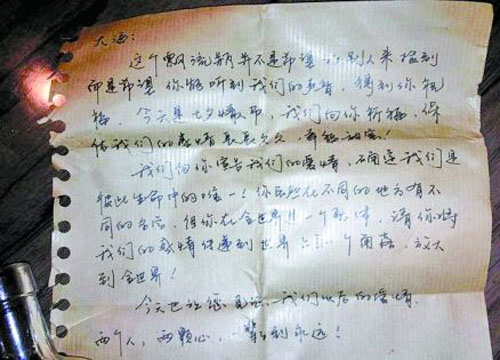 大海：
这个飘流瓶并不是希望 别人来捡到
而是希望你能听到我们的声音，得到你祝
福，今天是七夕情人节，我们向你祈福，保
佑我们的感情长长久久，幸福甜蜜！
我们向你宣告我们的爱情，确定我们是
彼此生命中的唯一！你虽然在不同的地方有不
同的名字，但你在全世界 一个 体，请你将
我们的感情传递到世界 每一个角落，放大
到全世界！
今天也让您见证 我们以后的爱情，
两个人，两颗心，一辈 到永远！